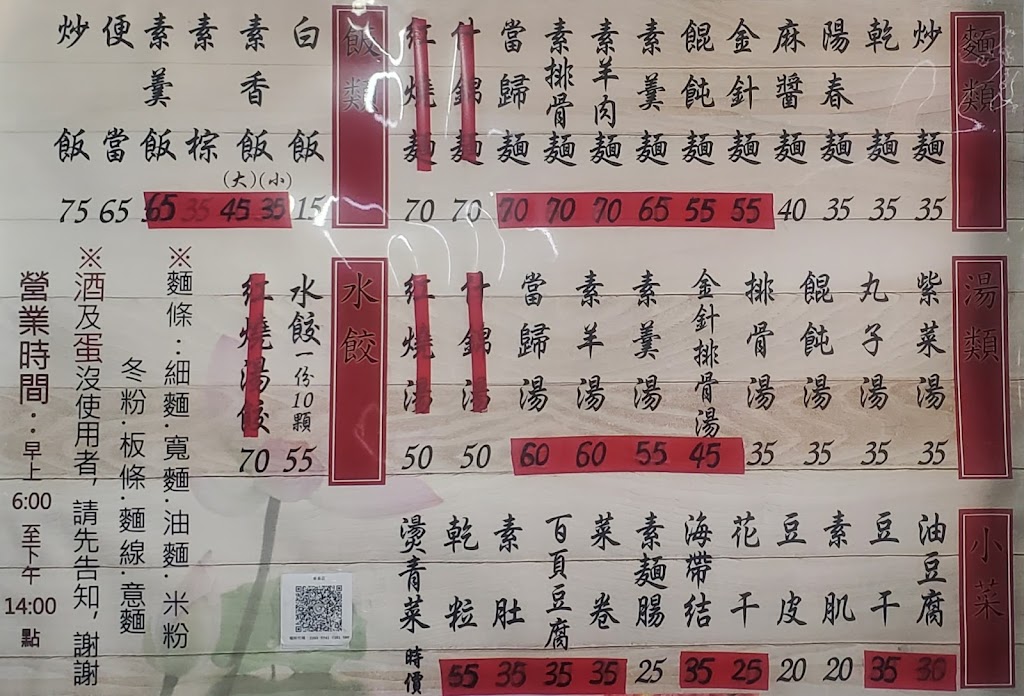 麵類
炒麵 35
乾麵 35
陽春麵 35
麻醬麵 40
金針麵 55
餛飩麵 55
素羹麵 65
素羊肉麵 70
素排骨麵 70
當歸麵 70
什錦麵 70
紅燒麵 70
飯類
白飯 15
素香飯 (大)(小) 45 35
素棕 35
素羹飯 65
便當 65
炒飯 75
湯類
紫菜湯 35
丸子湯 35
餛飩湯 35
排骨湯 35
金針排骨湯 45
素羹湯 55
素羊湯 60
當歸湯 60
什錦湯 50
紅燒湯 50
水餃
水餃一份10顆 55
紅燒湯餃 70
小菜
油豆腐 30
豆干 35
素肌 20
豆皮 20
花干 25
海帶结 35
素麵腸 25
菜卷 35
百頁豆腐 35
素肚 35
乾粒 55
燙青菜 時價
※麵條：細麵.寬麵.油麵.米粉
冬粉.板條.麵線.意麵
※酒及蛋沒使用者，請先告知，謝謝
營業時間：早上6:00至下午14:00點